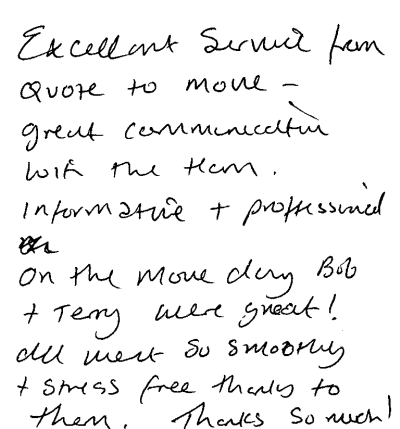 Excellent Service from
Quote to move -
great communication
with the team.
Informative + professional
On the move day Bob
+ Terry were great!
All went so smoothly
+ stress free thanks to
them. Thanks so much!